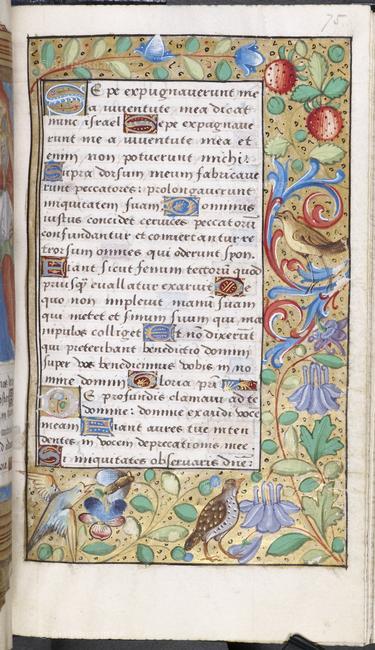 75
Sepe expugnaverunt me
a iuventute mea dicat
nunc israel Sepe expugnave
runt me a iuventute mea et
enim non potuerunt michi:
Supra dorsum meum fabricave
runt peccatores: prolongaverunt
iniquitatem suam Dominus
iustus concidet cervices peccatorū
confundantur et convertantur re
trorsum omnes qui oderunt syon.
Fiant sicut fenum tectorū quod
priusq̄ evallatur exaruit
quo non implevit manū suam
qui metet et sinum suum qui ma
nipulos colliget Et nō dixerūt
qui preteribant benedictio domini
super vos benediximus vobis in no
mine domini Gloria pri
De profundis clamavi ad te
domine: domine exaudi voce
meam Fiant aures tue inten
dentes in vocem deprecationis mee.
Si iniquitates observaris dñe: